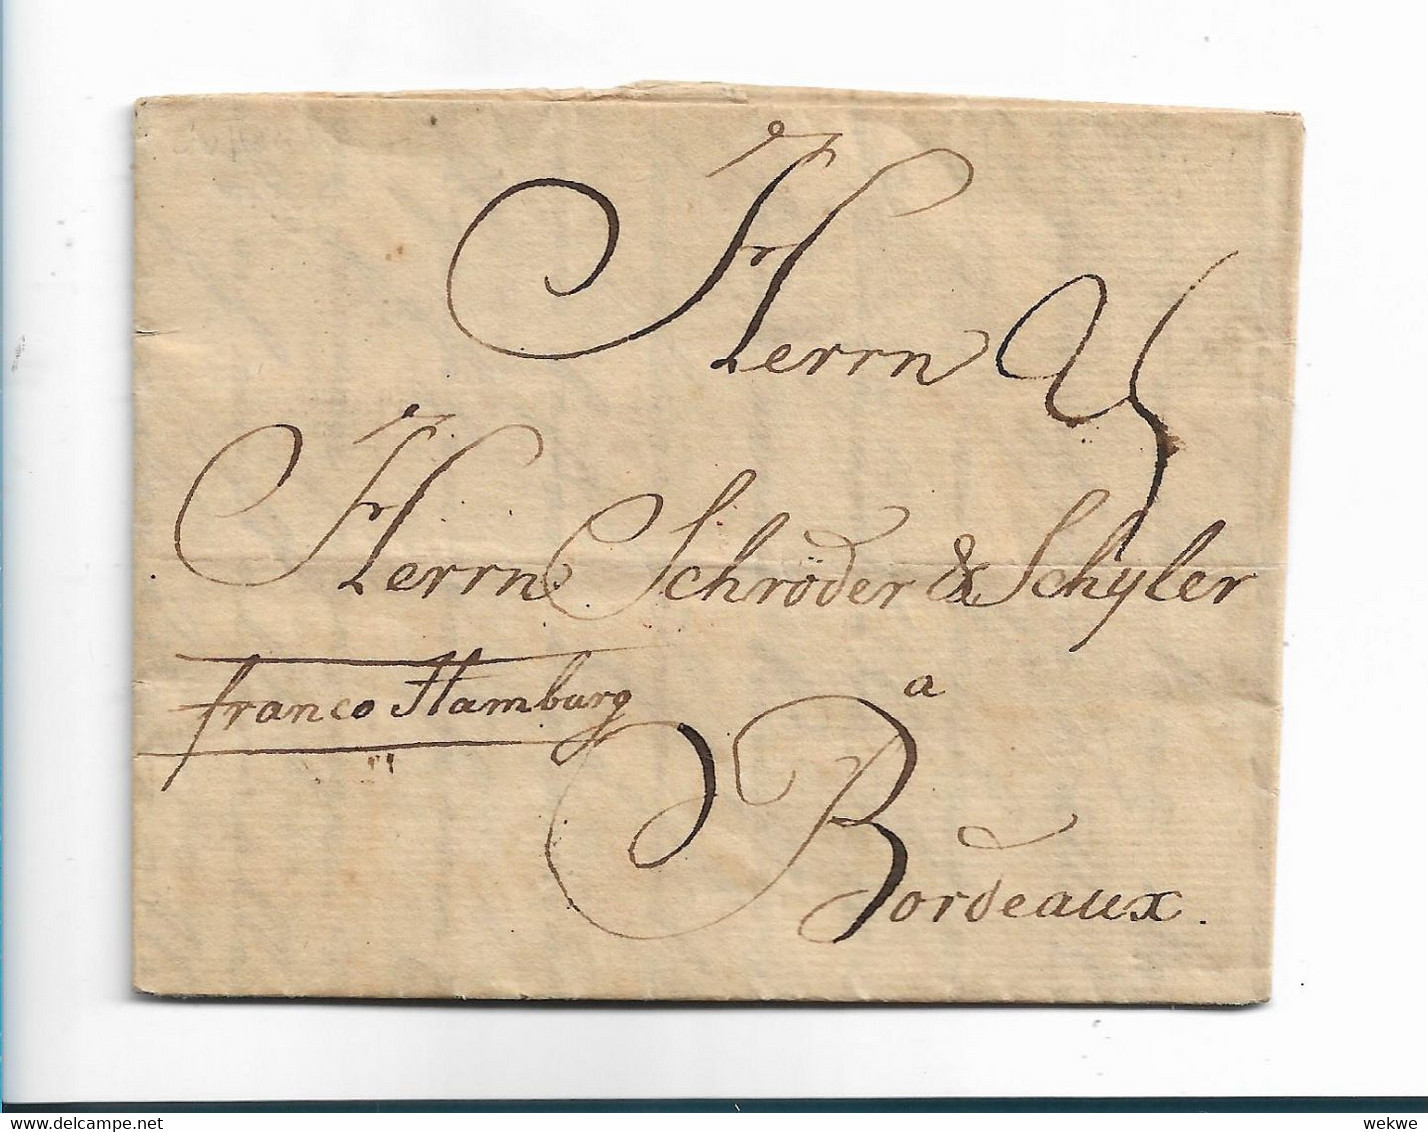 Herrn
Herrn Schröder & Schyler
franco Hamburg
a
Bordeaux.
www.delcampe.net
wekwe